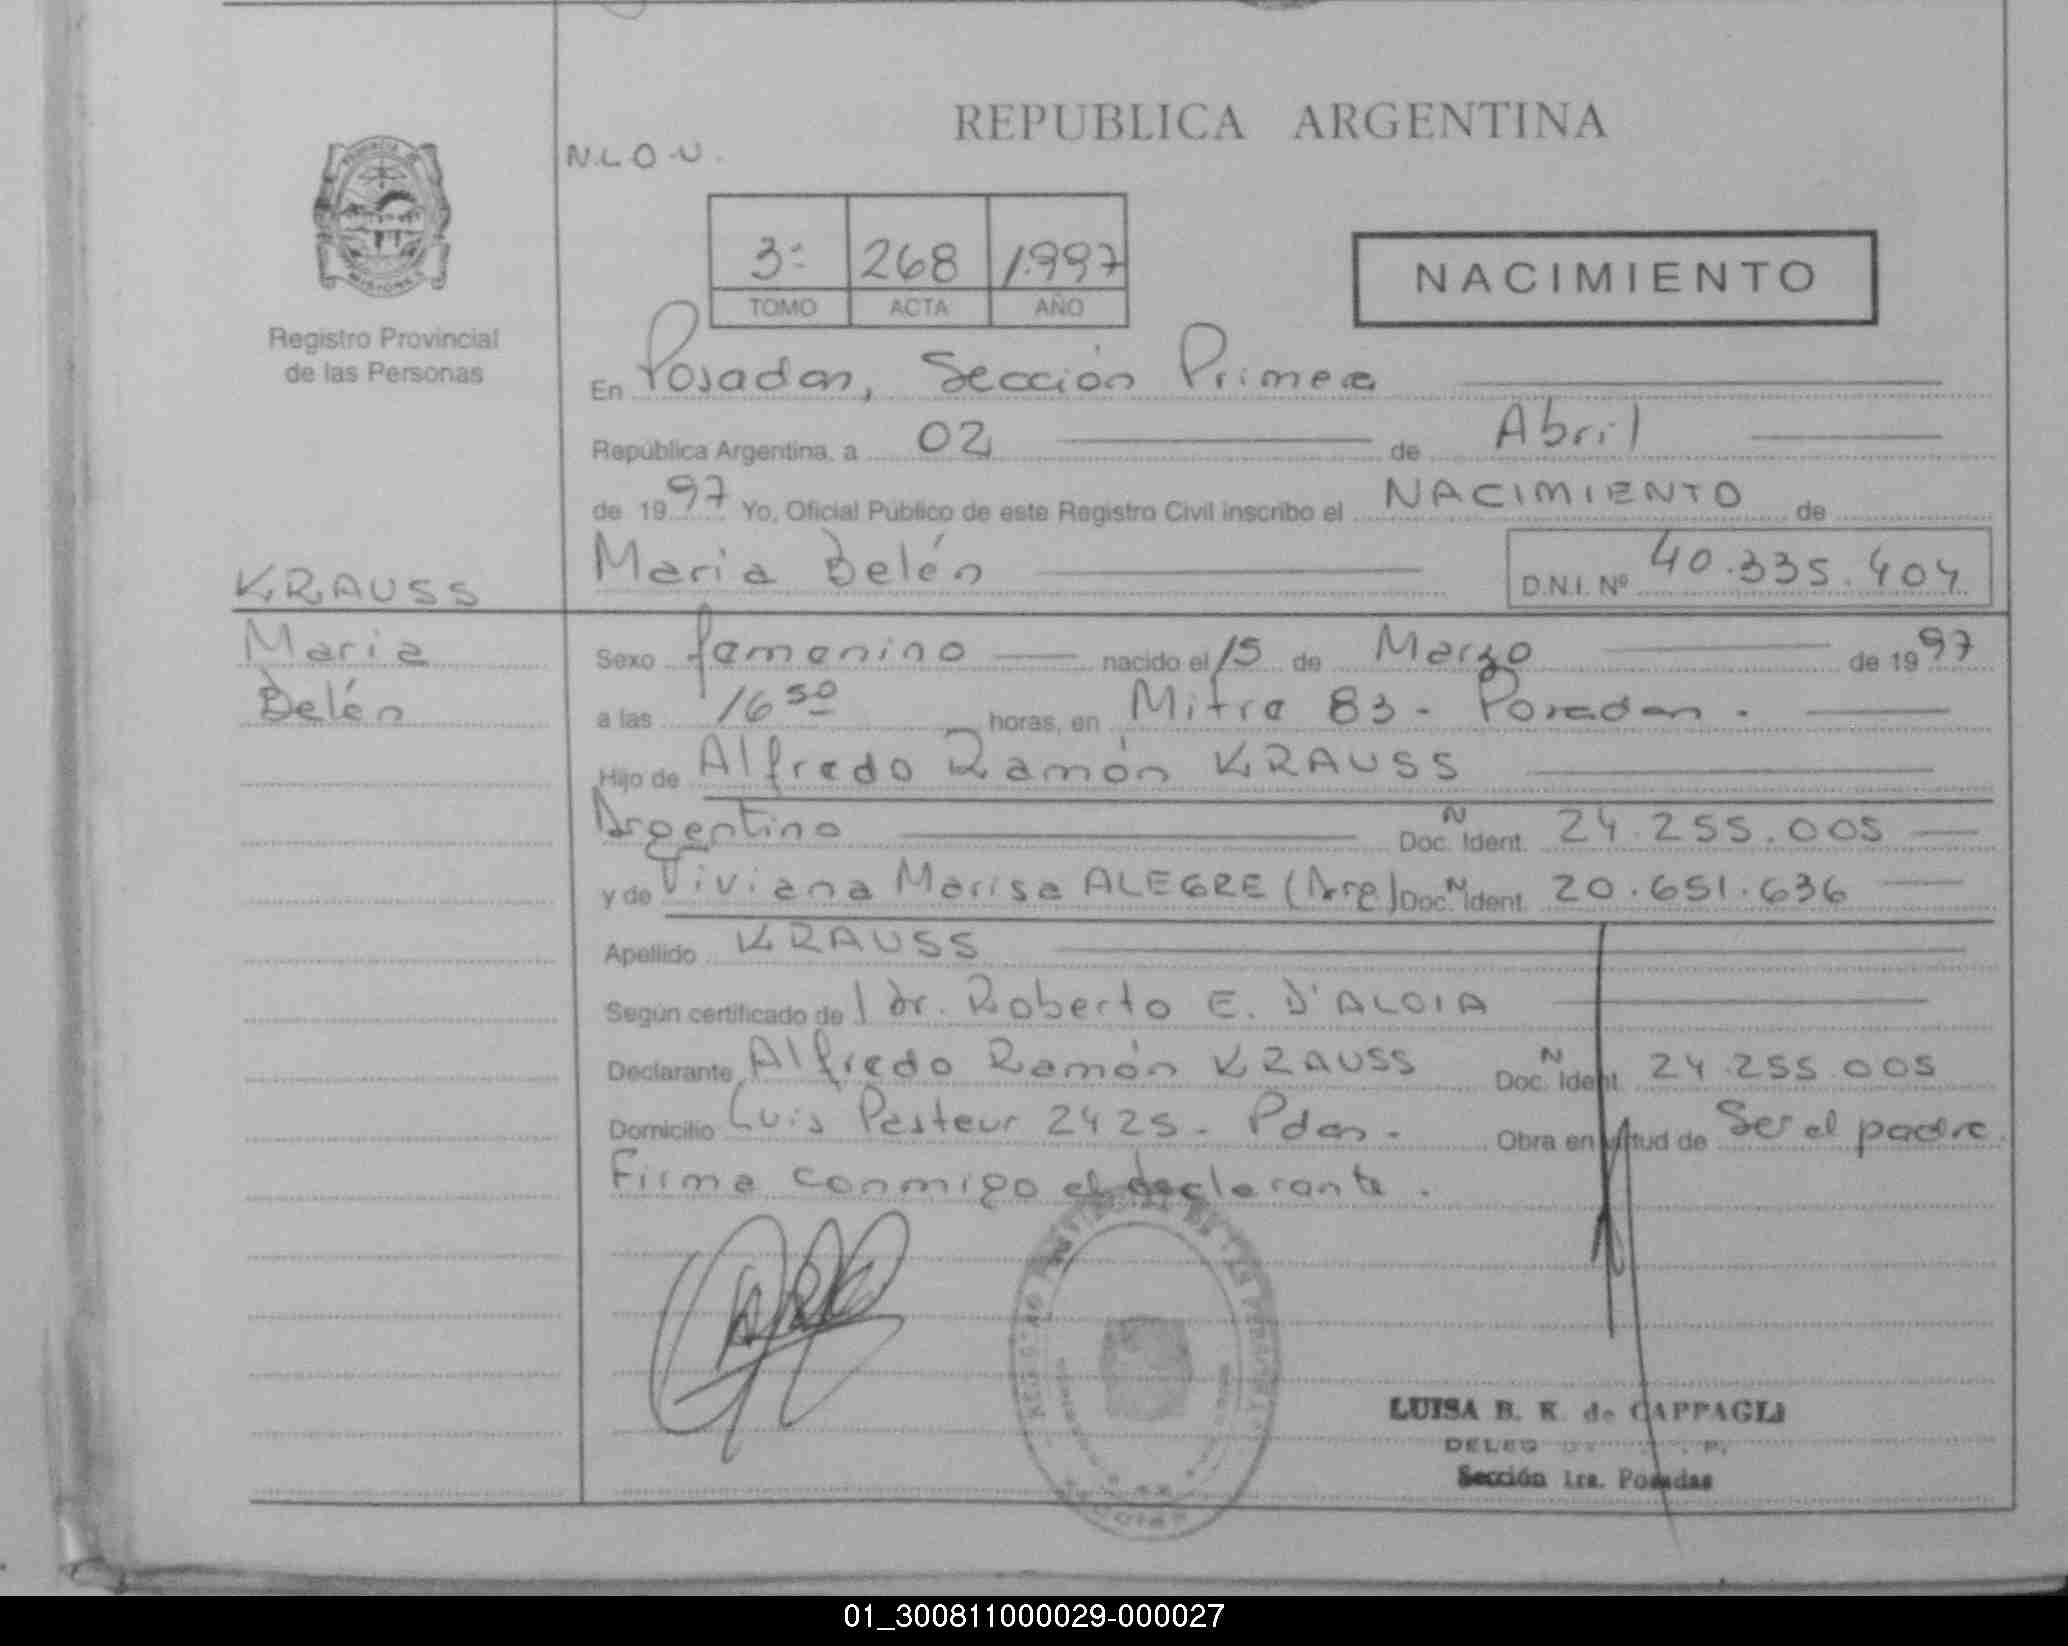 REPUBLICA ARGENTINA
N.L.O.U.
PROVINCIA DE
MISIONES
Registro Provincial
de las Personas
3º 268 1.997
TOMO ACTA AÑO
NACIMIENTO
En Posadas, Sección Primera
República Argentina, a 02 de Abril
de 1997 Yo, Oficial Público de este Registro Civil inscribo el NACIMIENTO de
María Belén D.N.I. Nº 40.335.404
KRAUSS
María
Belén
Sexo femenino nacido el 15 de Marzo de 1997
a las 16 50 horas, en Mitre 83 - Posadas.
Hijo de Alfredo Ramón KRAUSS
Argentino Doc. N Ident. 24.255.005
y de Viviana Marisa ALEGRE (Arg) Doc. N Ident. 20.651.636
Apellido KRAUSS
Según certificado del Dr. Roberto E. D'ALOIA
Declarante Alfredo Ramón KRAUSS Doc. N Ident. 24.255.005
Domicilio Luis Pasteur 2425 - Pdas. Obra en virtud de Ser el padre.
Firma conmigo el declarante.
LUISA B. K. de CAPPAGLI
DELEG
Sección 1ra. Posadas
01_300811000029-000027